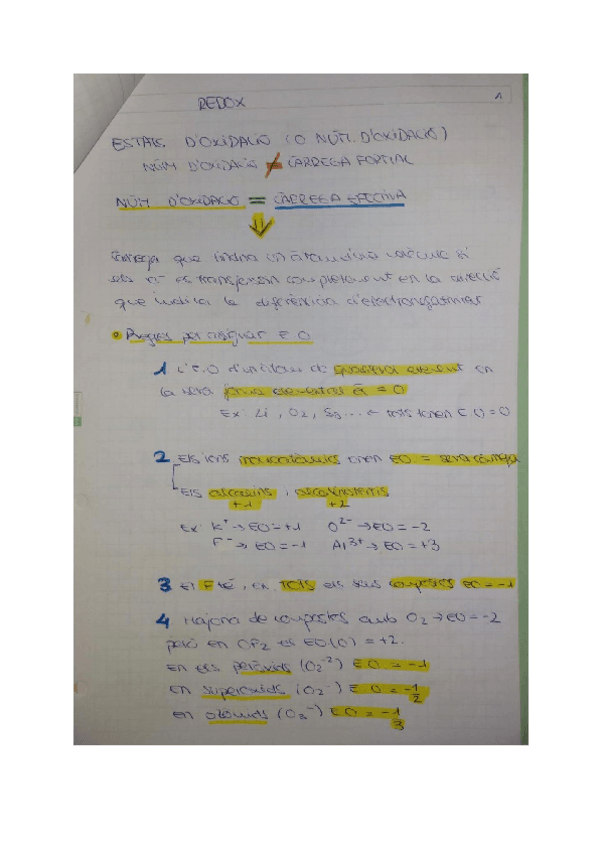 REDOX 1
ESTATS D'OXIDACIÓ (O NÚM. D'OXIDACIÓ)
NÚM D'OXIDACIÓ ≠ CÀRREGA FORMAL
NÚM D'OXIDACIÓ = CÀRREGA EFECTIVA
Càrrega que tindria un àtom d'una molècula si
els e⁻ es transferissin completament en la direcció
que indica la diferència d'electronegativitat
Regles per assignar E.O
1 L'E.O d'un àtom de qualsevol element en
la seva forma elemental és = 0
Ex: Li, O₂, S₈... ← tots tenen E.O = 0
2 Els ions monoatòmics tenen EO. = seva càrrega
Els alcalins, alcalinoterris
+1 +2
Ex: K⁺ → EO = +1 O²⁻ → EO = -2
F⁻ → EO = -1 Al³⁺ → EO = +3
3 El F té, en TOTS els seus compostos EO = -1
4 Majoria de compostos amb O₂ → EO = -2
però en OF₂ el EO(O) = +2.
En els peròxids (O₂⁻²) EO = -1
En superòxids (O₂⁻) EO = -1/2
en ozonids (O₃⁻) EO = -1/3